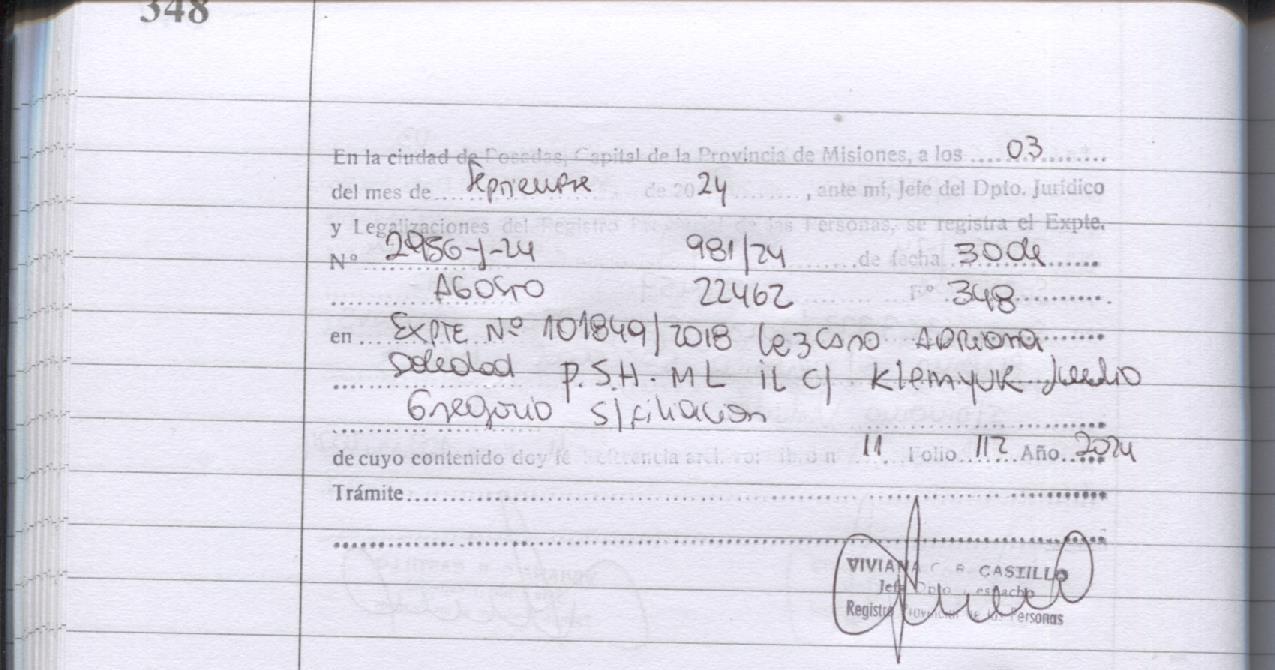 348
En la ciudad de Posadas, Capital de la Provincia de Misiones, a los ....03........
del mes de.... Septiembre ...... de 20 24 ........, ante mí, Jefe del Dpto. Jurídico
y Legalizaciones del Registro Provincial de las Personas, se registra el Expte.
Nº 2956-J-24 981/24 de fecha 30 de
AGOSTO 22462 Fº 348
en EXPTE Nº 101849/2018 Lezcano ADRIANA
Soledad P.S.H. M L iL C/ Klemyuk Julio
Gregorio S/filiacion
de cuyo contenido doy fe Referencia archivo: 11 Folio 112 Año 2024
Trámite
VIVIANA C. R. CASTILLO
Jefe Dpto Despacho
Registro Provincial de las Personas